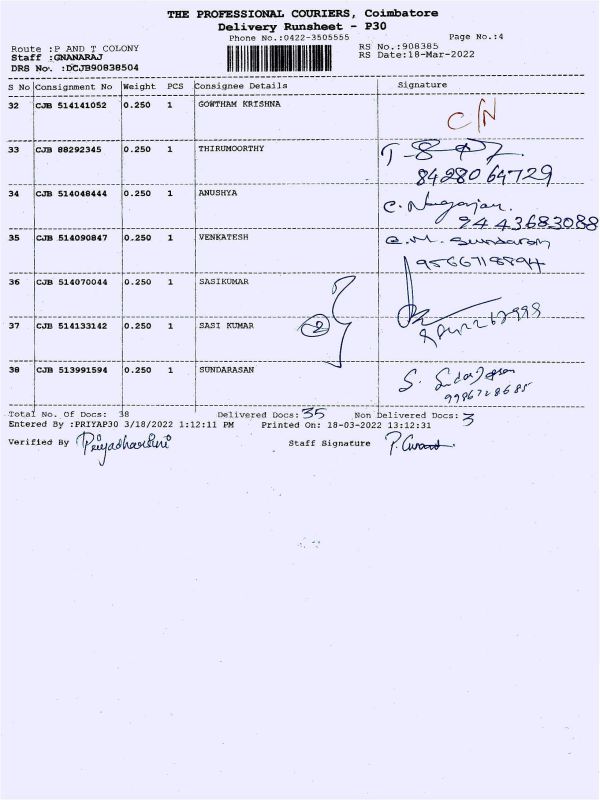 THE PROFESSIONAL COURIERS, Coimbatore
Delivery Runsheet - P30
Phone No.:0422-3505555 Page No.:4
Route :P AND T COLONY RS No.:908385
Staff :GNANARAJ RS Date:18-Mar-2022
DRS No. :DCJB90838504
S No Consignment No Weight PCS Consignee Details Signature
32 CJB 514141052 0.250 1 GOWTHAM KRISHNA
C/N
33 CJB 88292345 0.250 1 THIRUMOORTHY
8428064729
34 CJB 514048444 0.250 1 ANUSHYA C. Nagarajan.
9443683088
35 CJB 514090847 0.250 1 VENKATESH C.M. Sundaram
9566718894
36 CJB 514070044 0.250 1 SASIKUMAR
37 CJB 514133142 0.250 1 SASI KUMAR 2
38 CJB 513991594 0.250 1 SUNDARASAN S.
9986728685
Total No. Of Docs: 38 Delivered Docs: 35 Non Delivered Docs: 3
Entered By :PRIYAP30 3/18/2022 1:12:11 PM Printed On: 18-03-2022 13:12:31
Verified By Priyadharshni Staff Signature